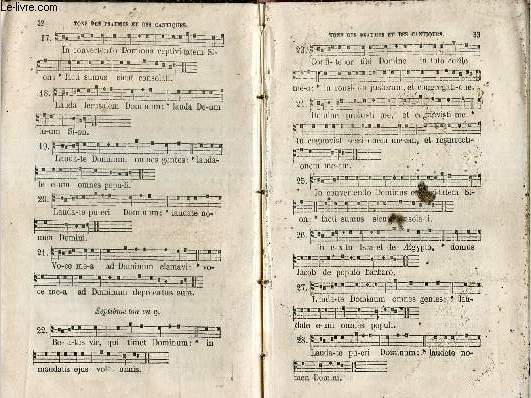 Le-livre.com
32 TONS DES PSAUMES ET DES CANTIQUES.
17.
In convertendo Dominus captivitatem Si-
on: * facti sumus sicut consolati.
18.
Lauda Jerusalem Dominum: * lauda De-um
tu-um Si-on.
19.
Lauda-te Dominum omnes gentes: * lauda-
te e-um omnes popu-li.
20.
Lauda-te pu-eri Dominum: * laudate no-
men Domini.
21.
Vo-ce me-a ad Dominum clamavi: * vo-
ce me-a ad Dominum deprecatus sum.
22.
Be-a-tus vir, qui timet Dominum: * in
mandatis ejus volet nimis.
TONS DES PSAUMES ET DES CANTIQUES. 33
23.
Confi-te-or tibi Domine in toto corde
me-o: * in consi-lio justorum, et congregati-one.
24.
Domine probasti me, et cognovisti me: *
tu cognovisti sessi-onem me-am, et resurrecti-
onem me-am.
25.
In convertendo Dominus Si-
on: * facti sumus sicut
26.
In e-xitu Isra-el de Ægypto, * domus
Jacob de populo barbaro.
27.
Lauda-te Dominum omnes gentes: * lau-
date e-um omnes populi.
28.
Lauda-te pu-eri Dominum: * laudate no-
men Domini.